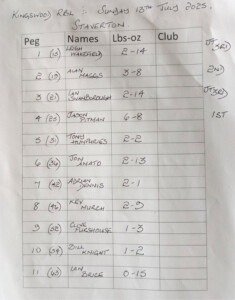 KINGSWOOD RBL :- SUNDAY 13TH JULY 2025.
STAVERTON
Peg Names Lbs-oz Club
1 LEIGH WAKEFIELD 2-14 JT 3RD
2 ALAN MAGGS 3-8 2ND
3 IAN SWANBOROUGH 2-14 JT 3RD
4 JASON PITMAN 6-8 1ST
5 TONY HUMPHRIES 2-2
6 JON AMATO 2-13
7 ADRIAN DENNIS 2-1
8 KEV MURCH 2-9
9 CLIVE FURSHOUSE 1-3
10 BILL KNIGHT 1-2
11 IAN BRICE 0-15